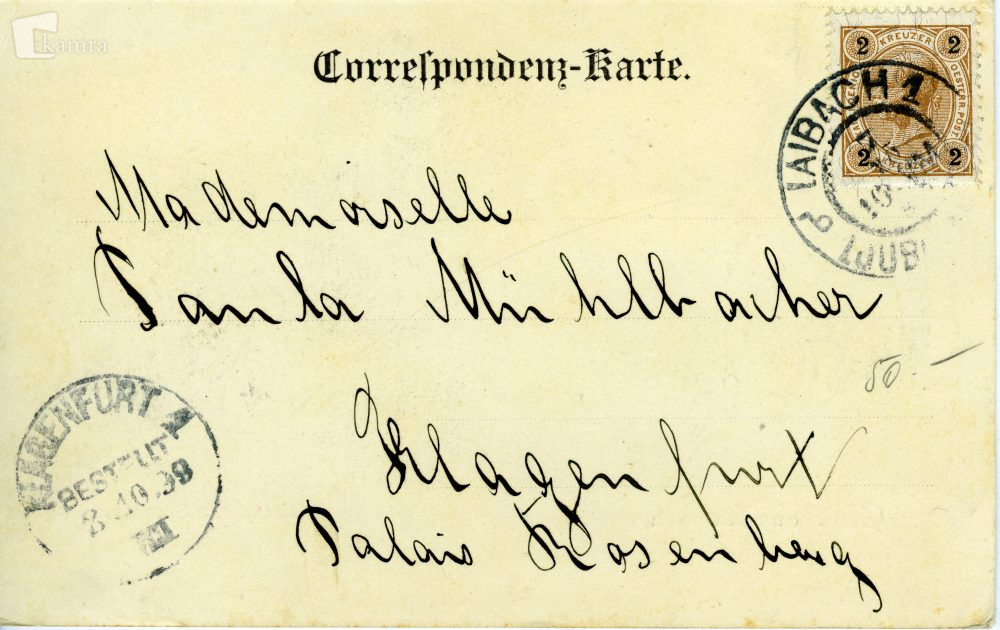 kamra
Correspondenz-Karte.
2 KREUZER 2
OESTERR. POST
2 2
LAIBACH 1
LJUB
10
Mademoiselle
Paula Mühlbacher
50.-
Klagenfurt
Palais Rosenberg
KLAGENFURT
BESTELLT
8.10.98